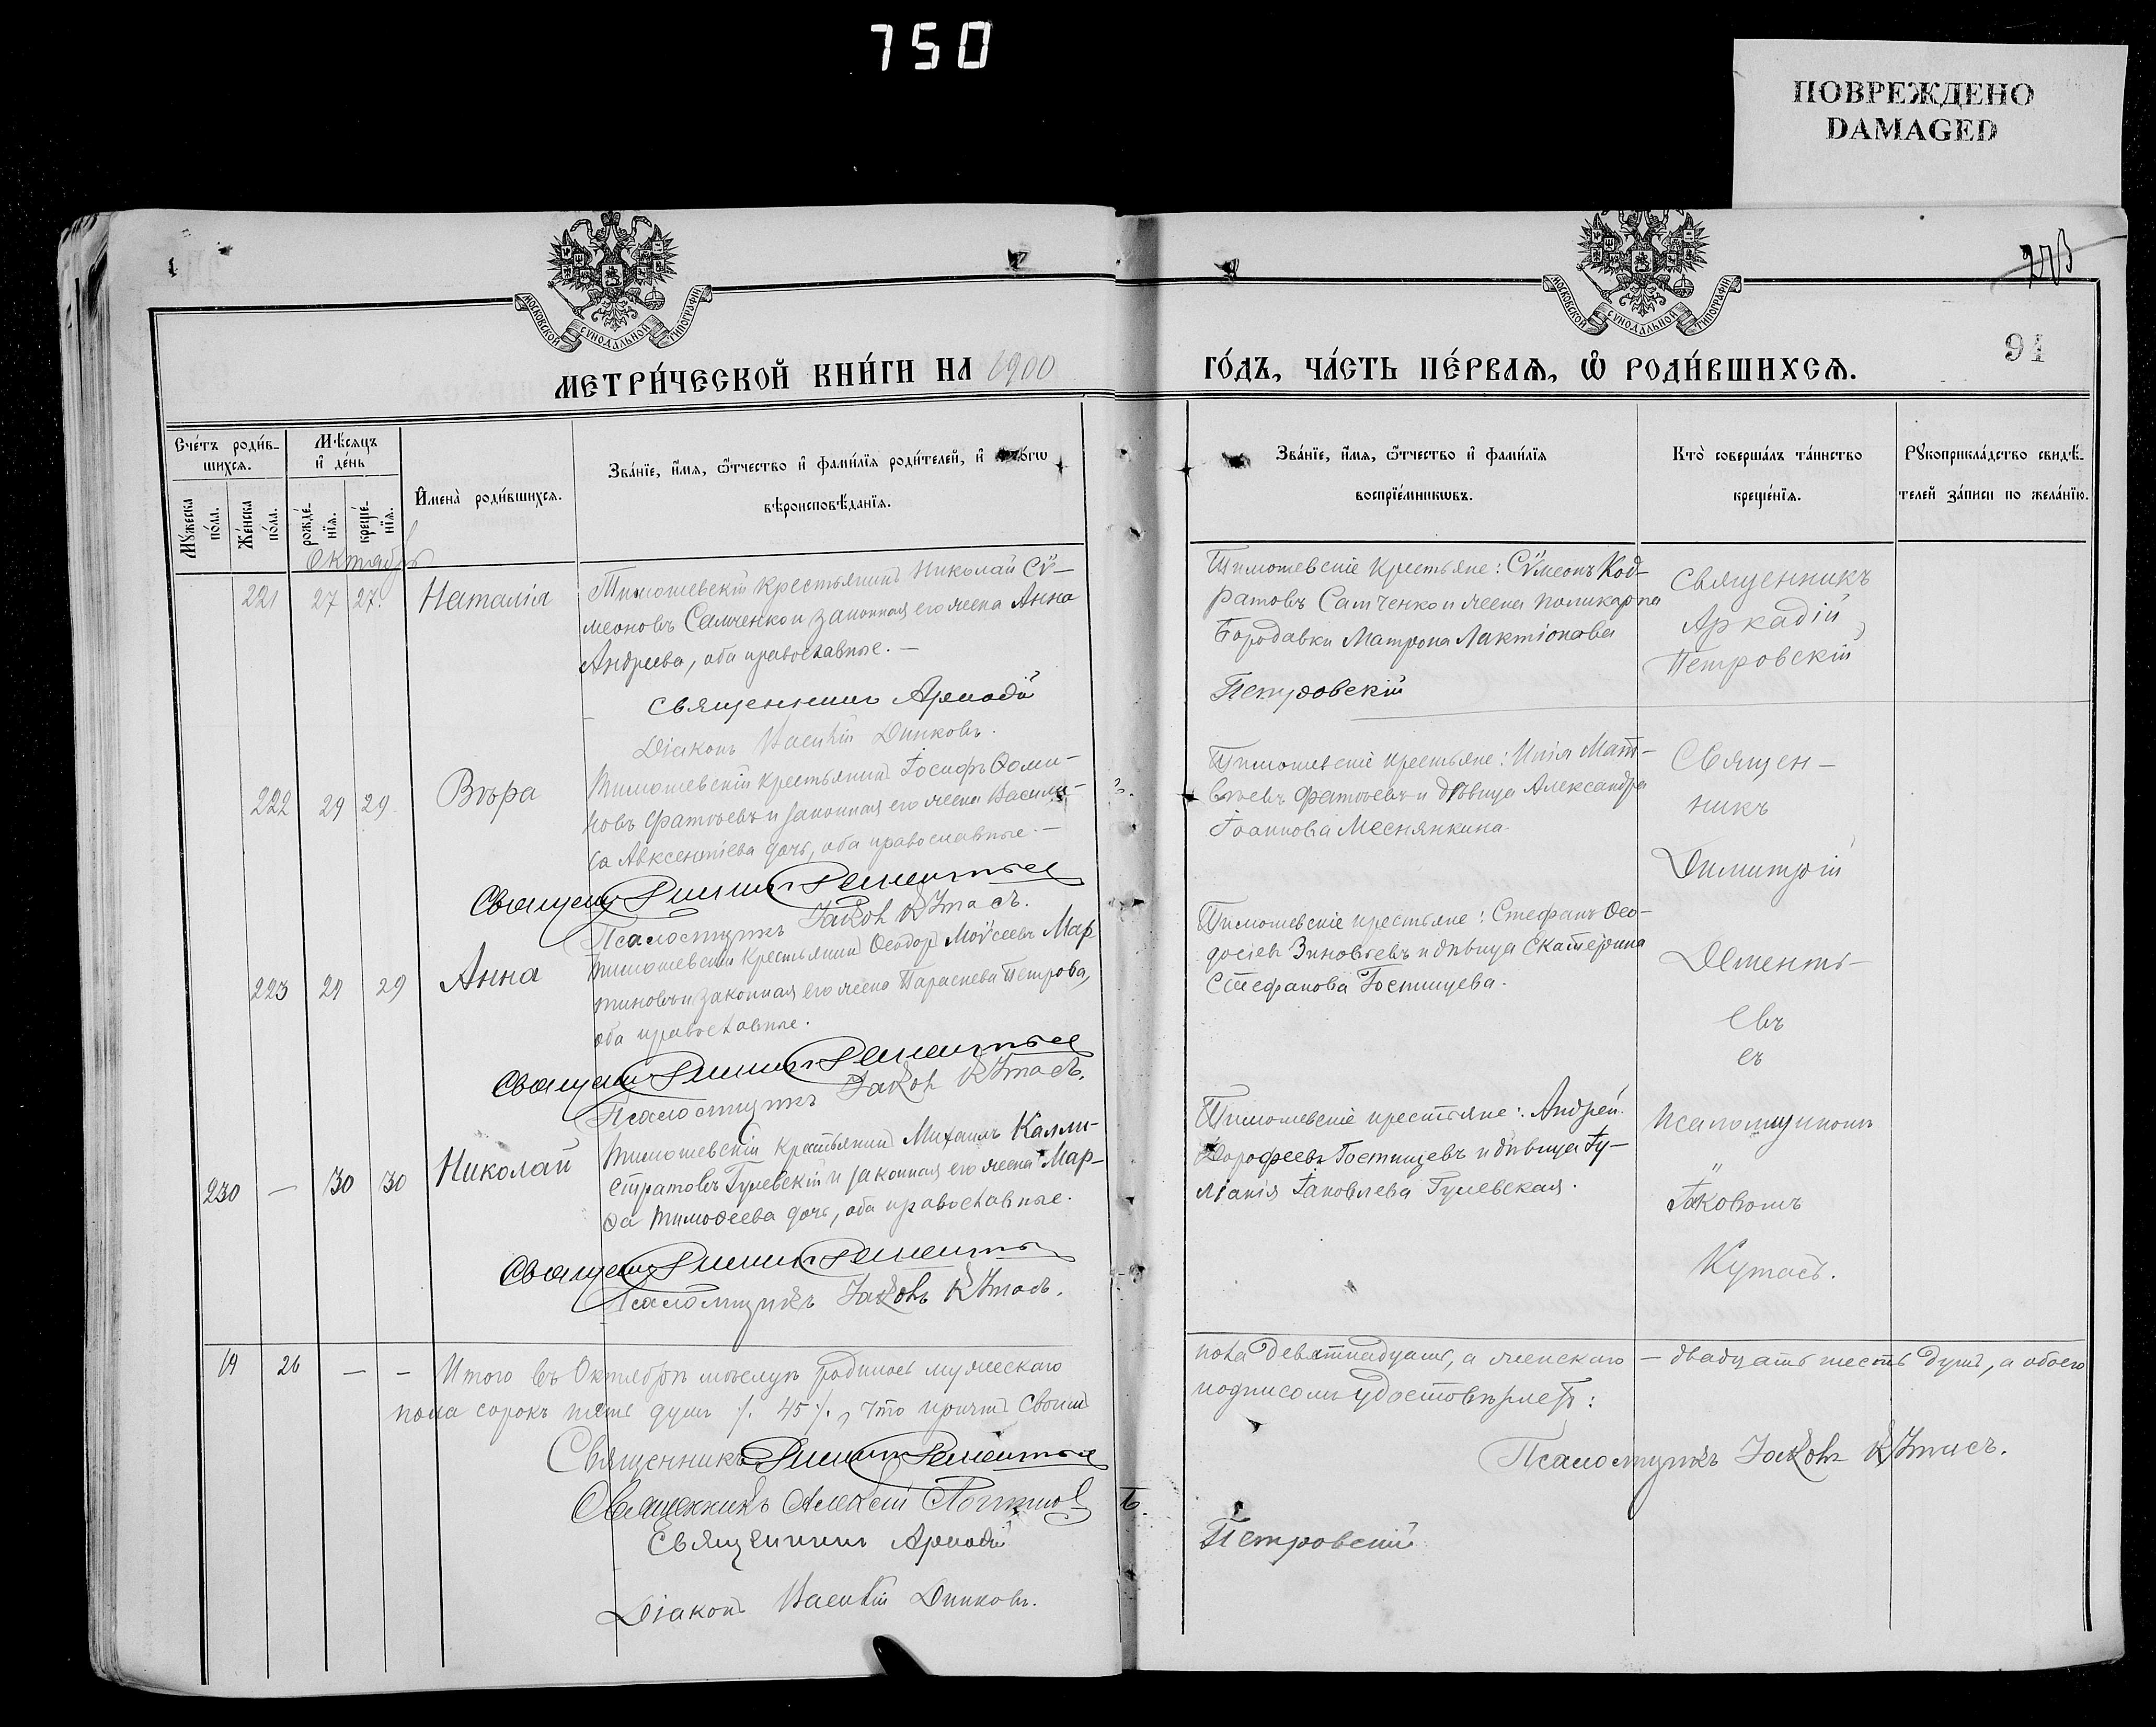 750
ПОВРЕЖДЕНО
DAMAGED
МОСКОВСКОЙ СѴНОДАЛЬНОЙ ТИПОГРАФІИ
МОСКОВСКОЙ СѴНОДАЛЬНОЙ ТИПОГРАФІИ
91
МЕТРИ́ЧЕСКОЙ КНИ́ГИ НА 1900
ГО́ДЪ, ЧА́СТЬ ПЕ́РВАѦ, Ѡ РОДИ́ВШИХСѦ.
Сче́тъ роди́в-
шихсѧ.
Мѣ́сѧцъ
и де́нь
Мꙋ́жеска по́ла.
Же́нска по́ла.
рожде́-
нїѧ.
креще́-
нїѧ.
Имена̀ роди́вшихсѧ.
Зва́нїе, и́мѧ, ѻ́тчество и фами́лїѧ роди́телей, и
вѣроисповѣ́данїѧ.
Зва́нїе, и́мѧ, ѻ́тчество и фами́лїѧ
воспрїе́мникѡвъ.
Кто̀ соверша́лъ та́инство
креще́нїѧ.
Рꙋкоприкла́дство свидѣ́-
телей за́писи по жела́нїю.
Октябрь
221 27 27. Наталія
Тимошевскій крестьянинъ Николай Сѵ-
меоновъ Самченко и законная его жена Анна
Андреева, оба православные. —
Священникъ Аркадій
Діаконъ Василій Динковъ.
Тимошевскіе крестьяне: Сѵмеонъ Код-
ратовъ Самченко и жена Поликарпа
Бородавки Матрона Лактіонова
Петровскій
Священникъ
Аркадій
Петровскій
222 29 29. Вѣра
Тимошевскій крестьянинъ Іосифъ Ѳоми-
новъ Фатѣевъ и законная его жена Васили-
са Авксентіева дочь, оба православные. —
Псаломщикъ Іаковъ Кутасъ.
Тимошевскіе крестьяне: Илія Мат-
вѣевъ Фатѣевъ и дѣвица Александра
Іоаннова Меснянкина.
Священ-
никъ
Димитрій
223 29 29 Анна
Тимошевскій крестьянинъ Ѳеодоръ Моѵсеевъ Мар-
тиновъ и законная его жена Параскева Петрова,
оба православные.
Псаломщикъ Іаковъ Кутасъ.
Тимошевскіе крестьяне: Стефанъ Ѳео-
досіевъ Зиновьевъ и дѣвица Екатерина
Стефанова Гостищева.
Дементь-
евъ
съ
230 — 30 30 Николай
Тимошевскій крестьянинъ Михаилъ Калли-
стратовъ Гулевскій и законная его жена Мар-
ѳа Тимоѳеева дочь, оба православные.
Псаломщикъ Іаковъ Кутасъ.
Тимошевскіе крестьяне: Андрей
Дорофеевъ Гостищевъ и дѣвица Іу-
ліанія Іаковлева Гулевская.
псаломщикомъ
"
Іаковомъ
Кутасъ.
19 26 — — Итого въ Октябрѣ мѣсяцѣ родилось мужескаго
пола девятнадцать, а женскаго — двадцать шесть душъ, а обоего
пола сорокъ пять душъ ./. 45 ./., что причтъ своимъ
подписомъ удостовѣряетъ:
Священникъ
Псаломщикъ Іаковъ Кутасъ.
Священникъ Алексій
Священникъ Аркадій
Петровскій
Діаконъ Василій Динковъ.